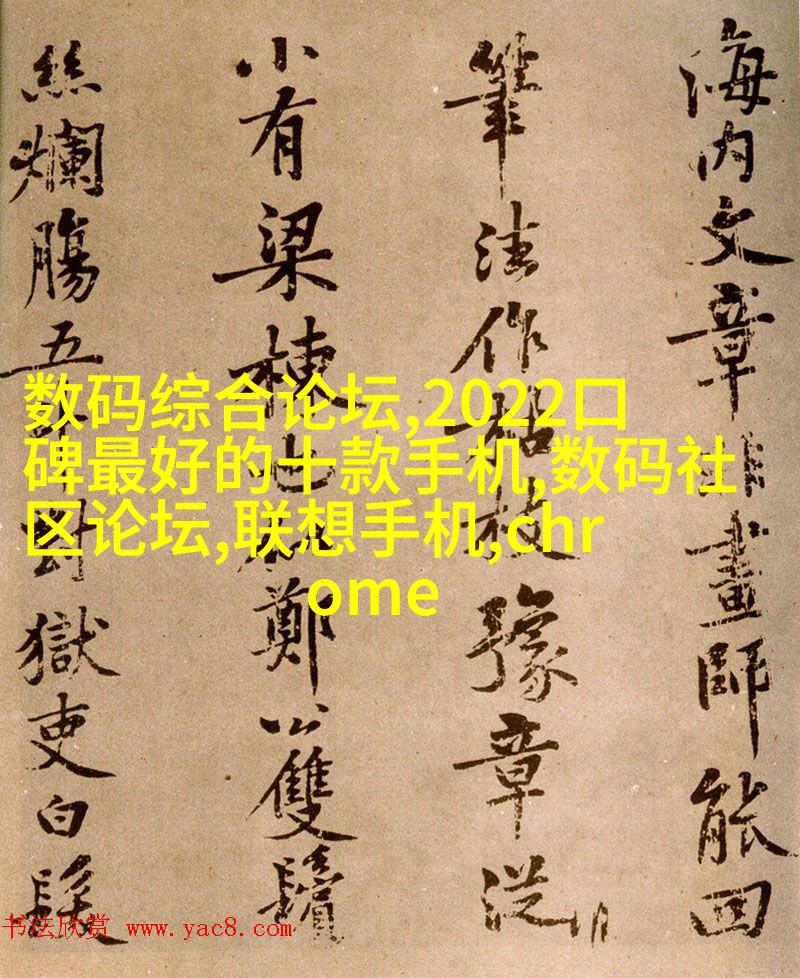 海内文章非畫師能回
筆法作枯枝豫章從
小有梁棟也鄭公雙鬢
絲爛腸五對獄吏白髮
数码综合论坛,2022口
碑最好的十款手机,数码社
区论坛,联想手机,chr
ome
书法欣赏 www.yac8.com